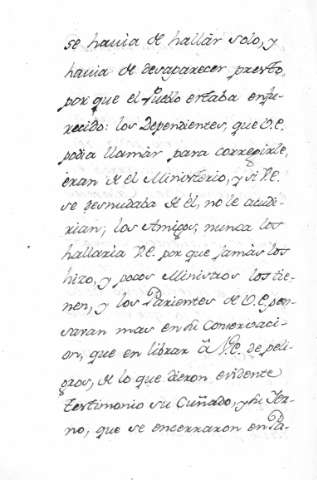 se havia de hallár solo, y
havia de desaparecer presto,
por que el Pueblo estaba enfu-
recido: los Dependientes, que V.E.
podia llamár para corregirle,
eran de el Ministerio, y si V.E.
se desnudaba de él, no le acudi-
rian; los Amigos, nunca los
hallaria V.E. por que jamás los
hizo, y pocos Ministros los tie-
nen, y los Parientes de V.E. pen-
saran mas en su Conservaci-
on, que en librar á V.E. de peli-
gros, de lo que dieron evidente
testimonio su Cuñado, y su Yer-
no, que se encerraron en Pa-